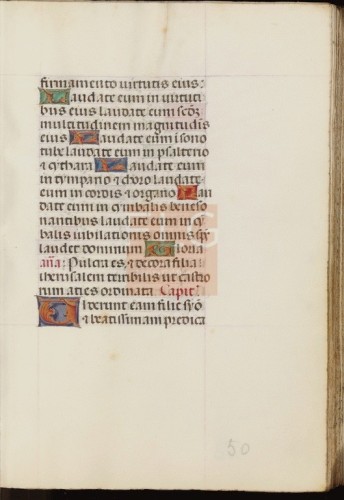 firmamento virtutis eius:
Laudate eum in virtuti
bus eius laudate eum scdz
multitudinem magnitudis
eius Laudate eum i sono
tube laudate eum in psalterio
& cythara Laudate eum
in tympano & choro laudate
eum in cordis & organo Lau
date eum in cymbalis beneso
nantibus laudate eum in cy
balis iubilationis omnis sps
laudet dominum Gloria
aña: Pulcra es, & decora filia i
iherusalem terribilis ut castro
rum acies ordinata Capit
Viderunt eam filie syō
& beatissimam predica
50